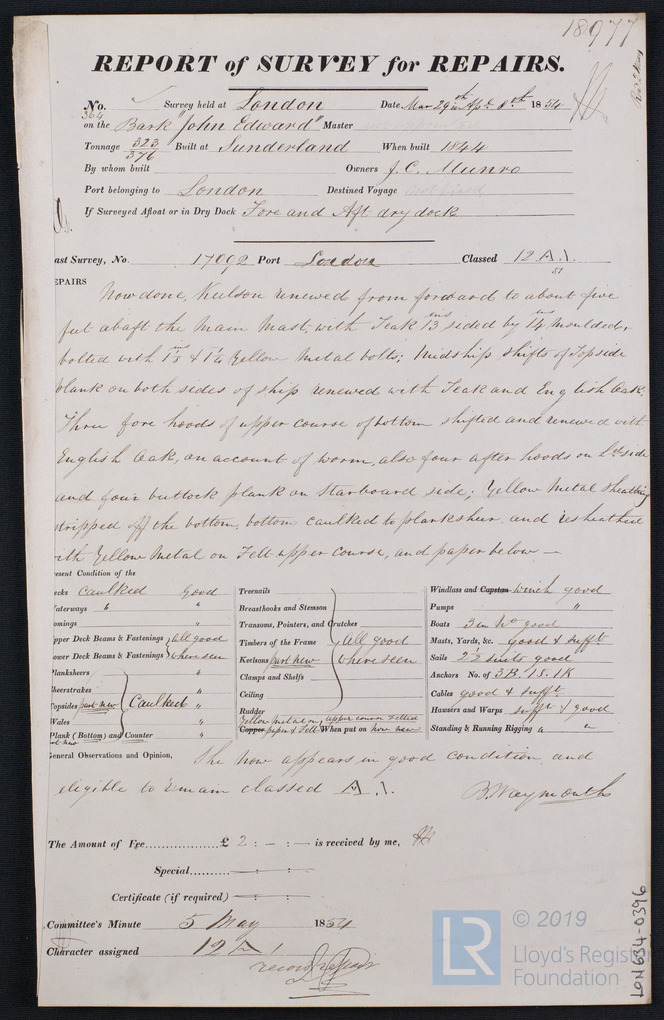 18977
REPORT of SURVEY for REPAIRS.
No. 364 Survey held at London Date Mar 29th & Apl 8th 1854
on the Bark "John Edward" Master
Tonnage 323/376 Built at Sunderland When built 1844
By whom built Owners J. C. Munro
Port belonging to London Destined Voyage not fixed
If Surveyed Afloat or in Dry Dock Fore and Aft dry dock
ast Survey, No. 17092 Port London Classed 12 A.1. 51
EPAIRS
Now done, Keelson renewed from forward to about five
feet abaft the Main Mast, with Teak 13 ins sided by 14 ins moulded,
bolted with 1⅛ & 1¼ Yellow Metal bolts; Midship shifts of Topside
plank on both sides of ship renewed with Teak and English Oak.
Three fore hoods of upper course of bottom shifted and renewed with
English Oak, on account of worm, also four after hoods on Ld side
and four buttock plank on Starboard side; Yellow Metal sheathing
stripped off the bottom, bottom caulked to planksheer and resheathed
with Yellow Metal on Felt upper course, and paper below —
resent Condition of the
ecks Caulked Good
aterways " "
omings "
pper Deck Beams & Fastenings all good
ower Deck Beams & Fastenings where seen
lanksheers "
heerstrakes "
opsides part new Caulked "
Wales "
Plank (Bottom) and Counter "
part new
Treenails
Breasthooks and Stemson
Transoms, Pointers, and Crutches
Timbers of the Frame All good
Keelsons part new where seen
Clamps and Shelfs
Ceiling
Rudder
Yellow Metal on upper course Felted
Copper paper & Felt When put on now new
Windlass and Capstan winch good
Pumps "
Boats 3 in No good
Masts, Yards, &c. Good & sufft
Sails 2½ suits good
Anchors No. of 3B. 1S. 1K
Cables good & sufft
Hawsers and Warps sufft & good
Standing & Running Rigging " "
General Observations and Opinion, She now appears in good condition, and
eligible to remain classed A.1. B. Waymouth
The Amount of Fee £ 2 : - : - is received by me,
Special - : - :
Certificate (if required) - : - :
Committee's Minute 5 May 1854
Character assigned 12 A 1
record repair
LR © 2019
Lloyd's Register
Foundation
LON634-0396